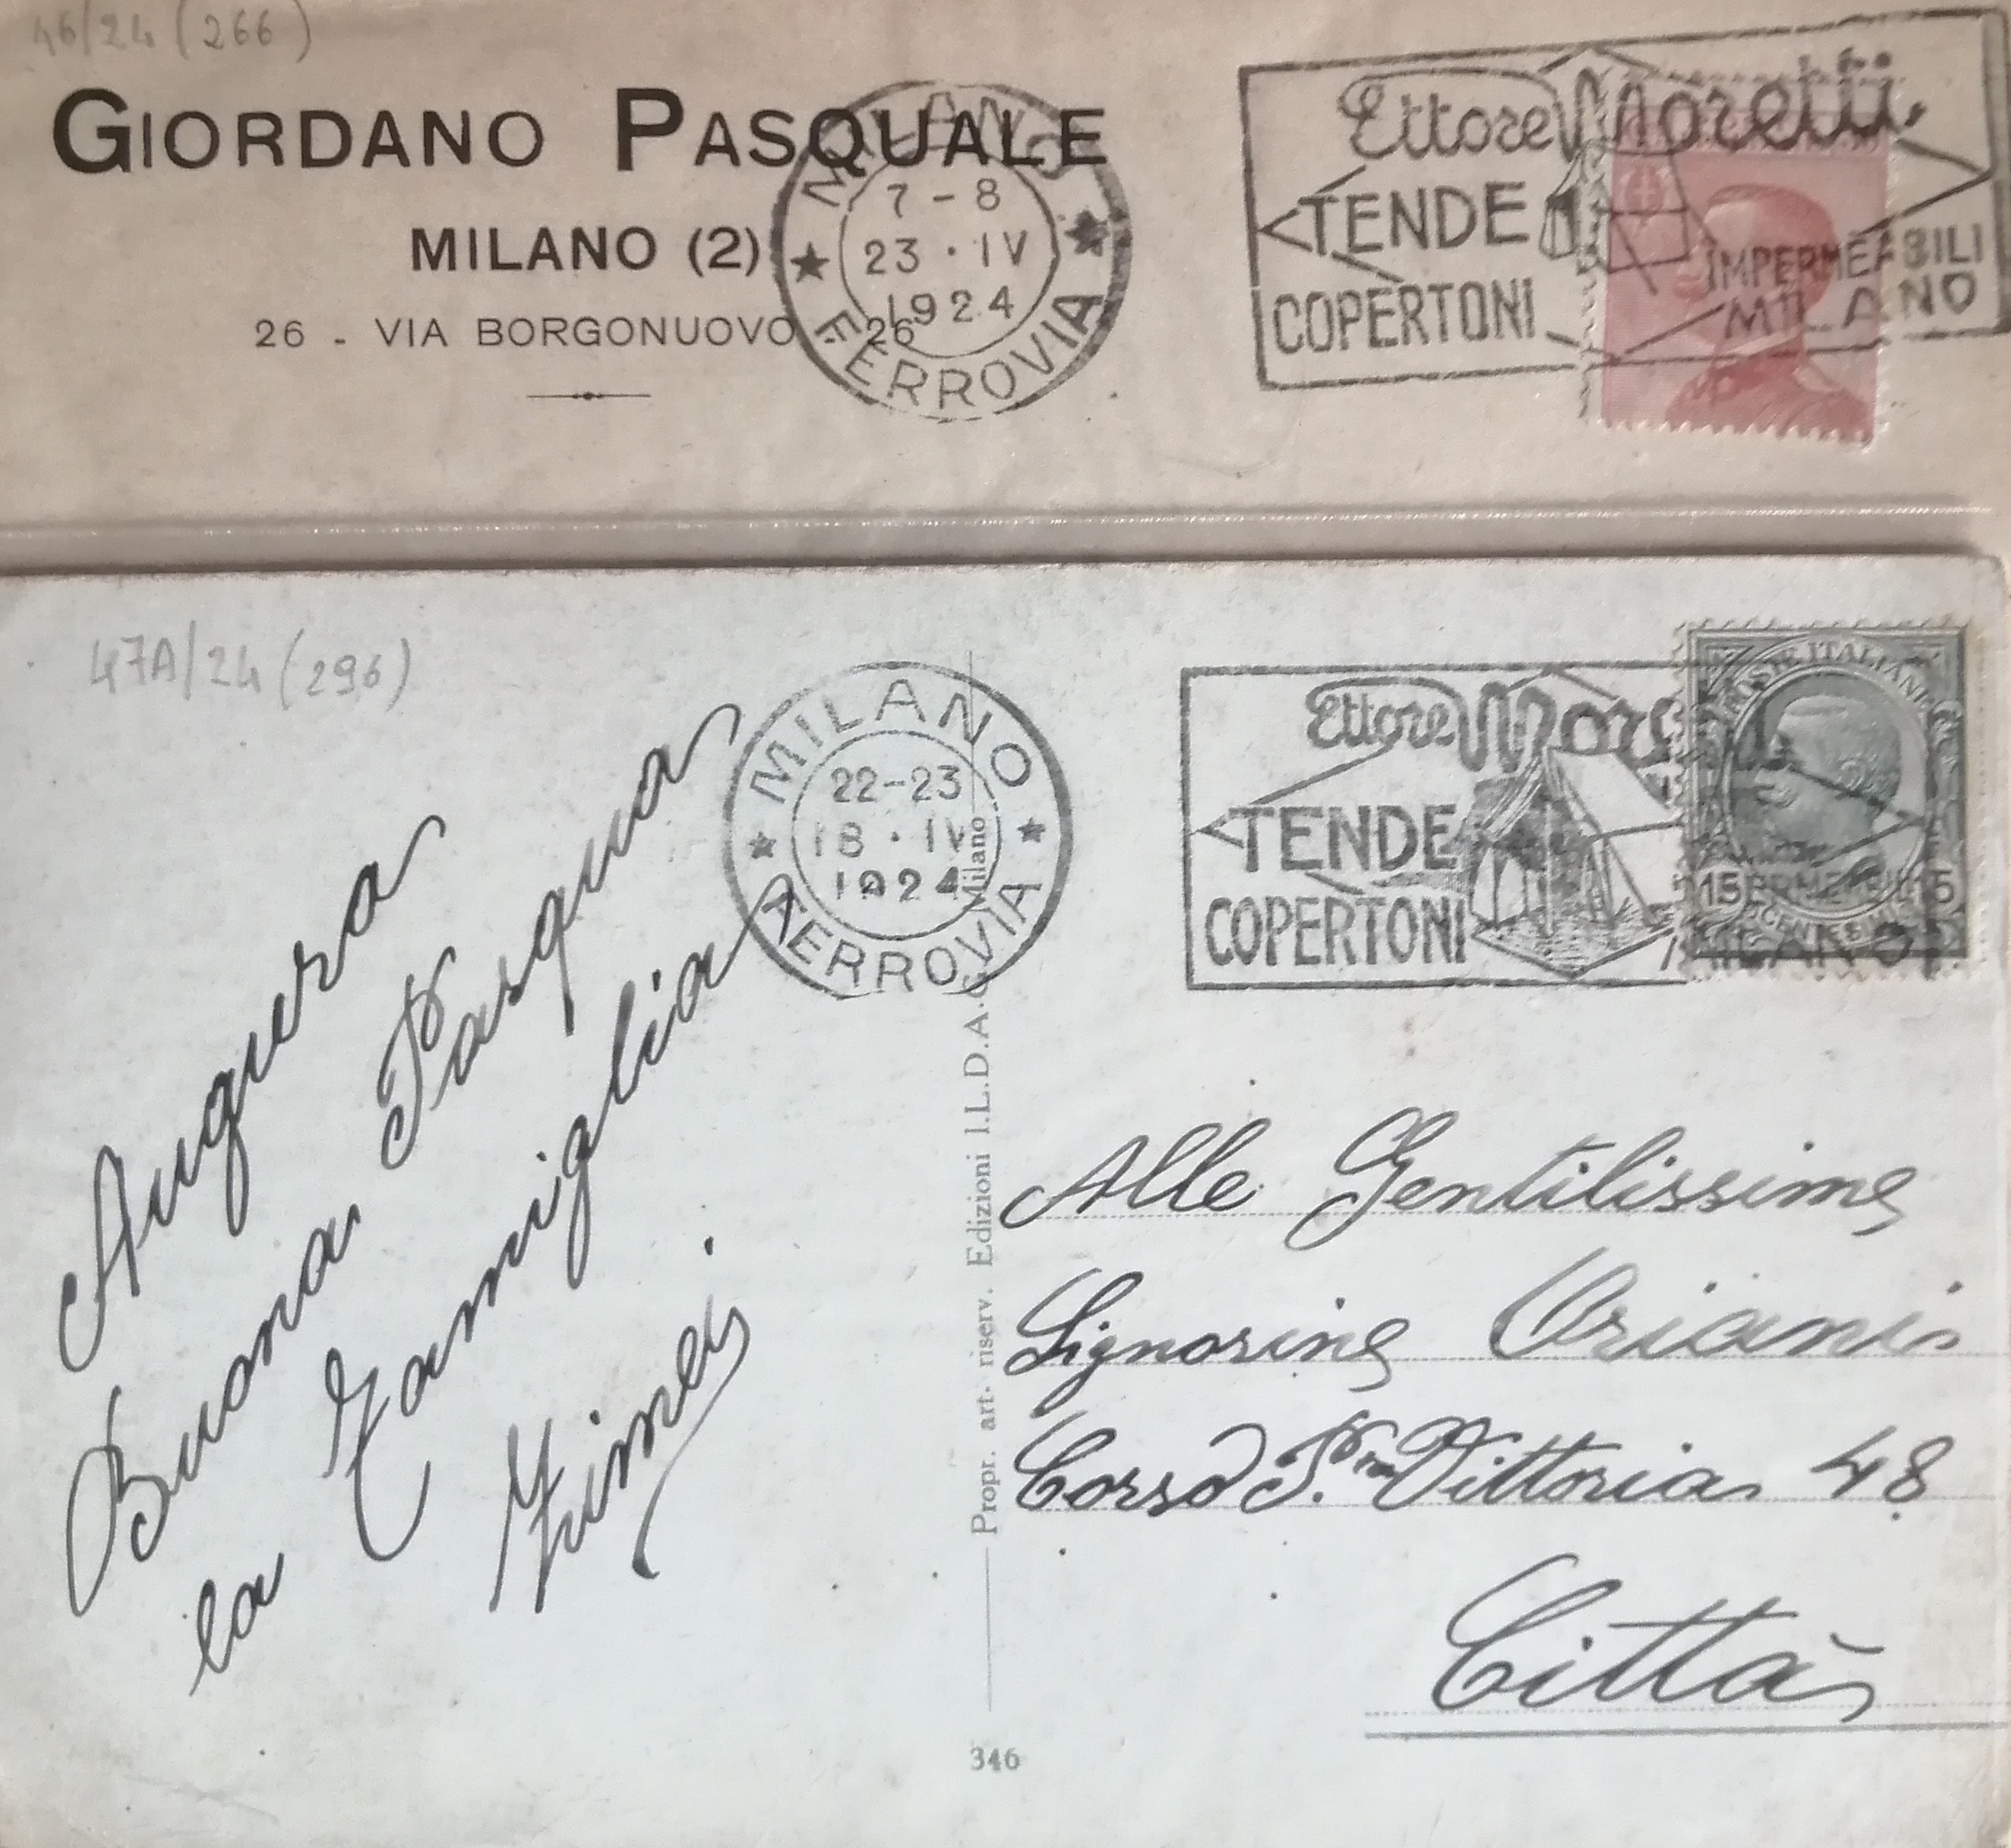 46/24 (266)
GIORDANO PASQUALE
MILANO (2)
26 - VIA BORGONUOVO - 26
MILANO
7-8
23 · IV
1924
FERROVIA
Ettore Moretti
TENDE
COPERTONI
IMPERMEABILI
MILANO
47A/24 (296)
MILANO
22-23
18 · IV
1924
FERROVIA
Ettore Moretti
TENDE
COPERTONI
MILANO
POSTE ITALIANE
15 15
CENTESIMI
Augura
Buona Pasqua
la Famiglia
Propr. art. riserv. Edizioni I.L.D.A.C. Milano
346
Alle Gentilissime
Signorine Oriani
Corso P. Vittoria 48
Città